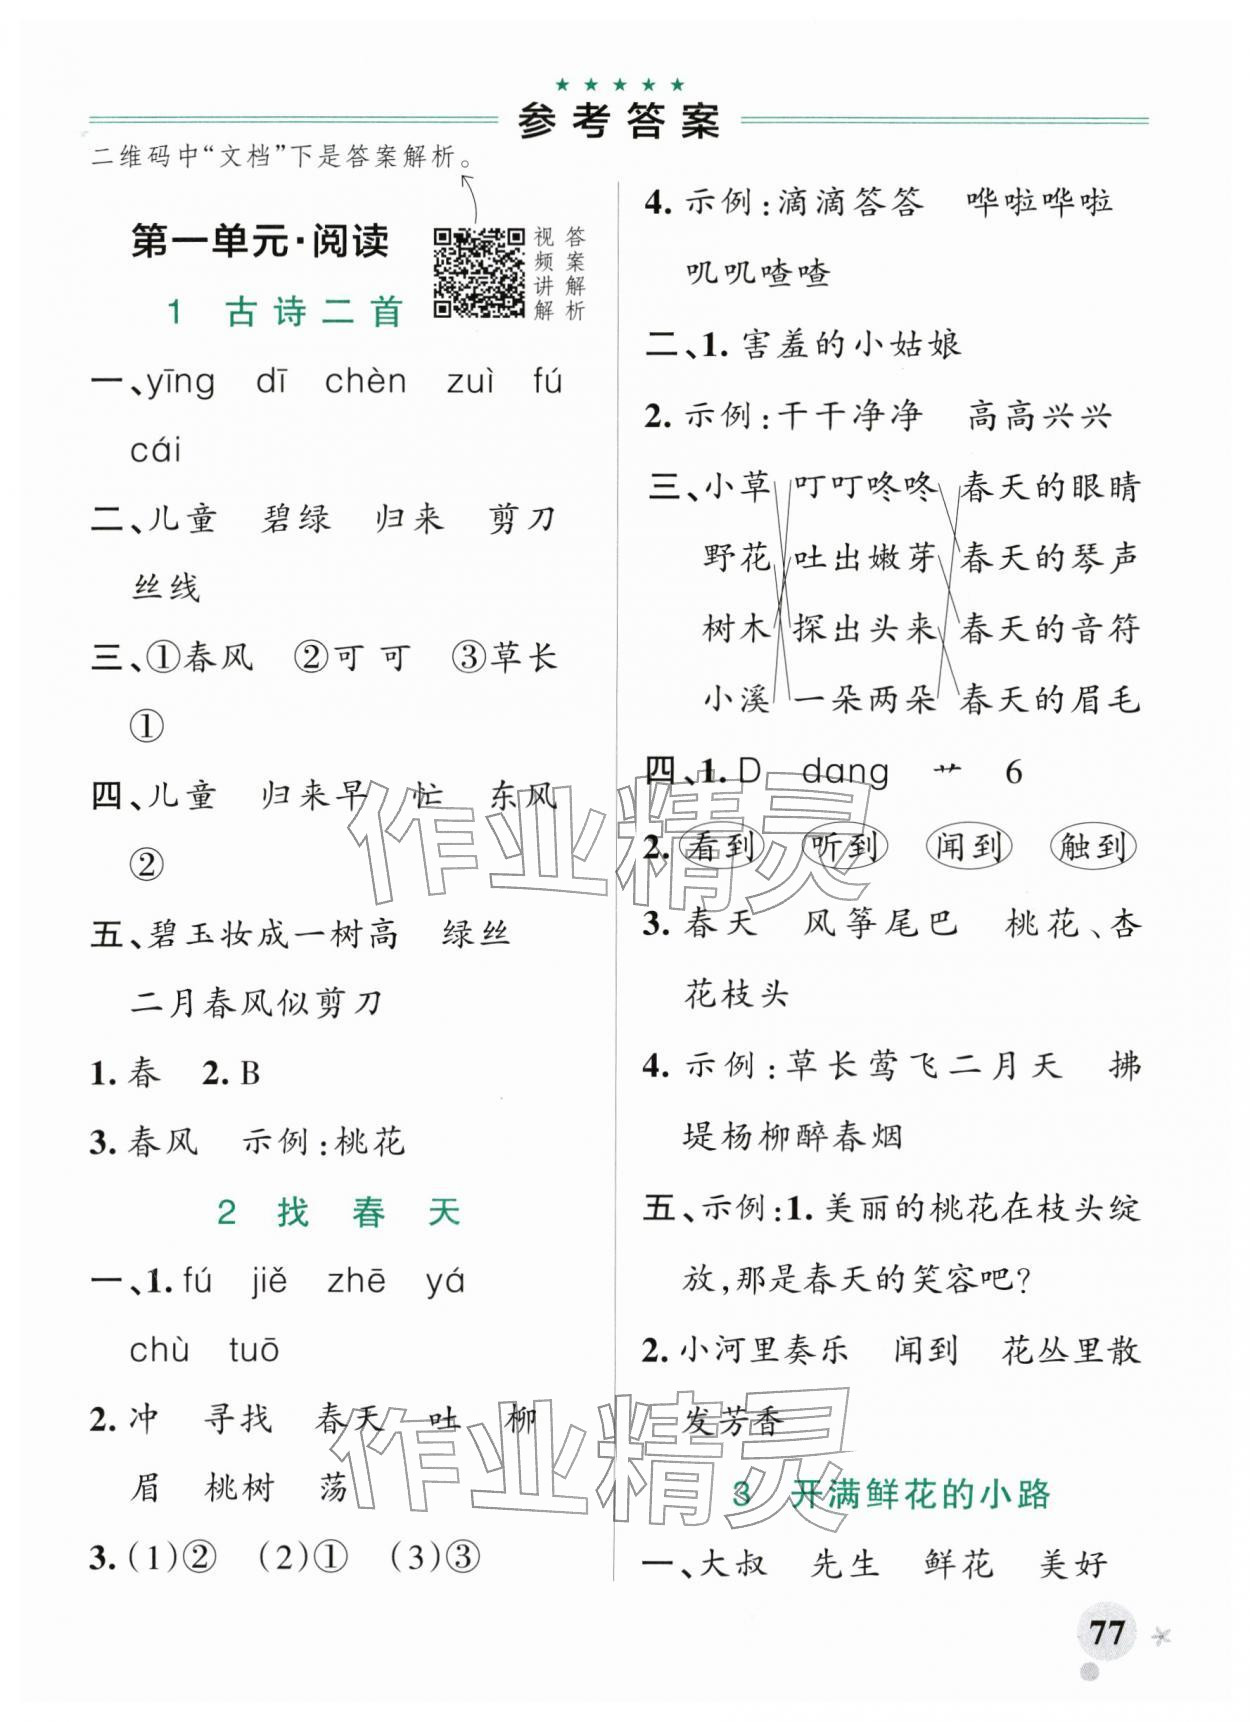 参考答案
二维码中“文档”下是答案解析。
第一单元·阅读
视频讲解
答案解析
1 古诗二首
一、yīng dī chèn zuì fú
cái
二、儿童 碧绿 归来 剪刀
丝线
三、①春风 ②可可 ③草长
①
四、儿童 归来早 忙 东风
②
五、碧玉妆成一树高 绿丝
二月春风似剪刀
1.春 2.B
3.春风 示例:桃花
2 找春天
一、1.fú jiě zhē yá
chù tuō
2.冲 寻找 春天 吐 柳
眉 桃树 荡
3.(1)② (2)① (3)③
4.示例:滴滴答答 哗啦哗啦
叽叽喳喳
二、1.害羞的小姑娘
2.示例:干干净净 高高兴兴
三、小草 叮叮咚咚 春天的眼睛
野花 吐出嫩芽 春天的琴声
树木 探出头来 春天的音符
小溪 一朵两朵 春天的眉毛
四、1.D dang 艹 6
2.看到 听到 闻到 触到
3.春天 风筝尾巴 桃花、杏
花枝头
4.示例:草长莺飞二月天 拂
堤杨柳醉春烟
五、示例:1.美丽的桃花在枝头绽
放,那是春天的笑容吧?
2.小河里奏乐 闻到 花丛里散
发芳香
3 开满鲜花的小路
一、大叔 先生 鲜花 美好
77
作业精灵
作业精灵